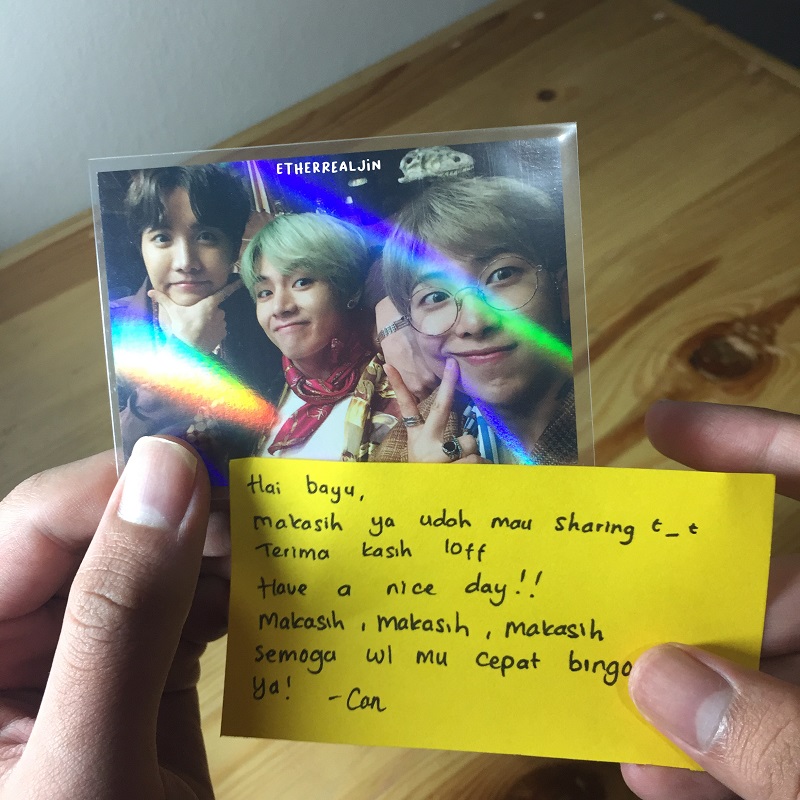 ETHERREALJiN
Hai bayu,
Makasih ya udah mau sharing t_t
Terima kasih loff
Have a nice day!!
Makasih, makasih, makasih
semoga wl mu cepat bingo
ya! -Can